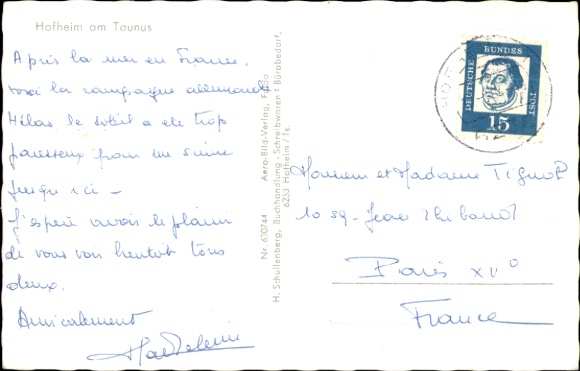 Hofheim am Taunus
Après la mer en France,
voici la campagne allemande
Hélas le soleil a été trop
paresseux pour me suivre
jusqu'ici –
J'espère avoir le plaisir
de vous voir bientôt tous
deux.
Amicalement
Madeleine
Nr. 630744 Aero-Bild-Verlag, Fulda
H. Schullenberg, Buchhandlung - Schreibwaren + Bürobedarf,
6233 Hofheim/Ts.
DEUTSCHE BUNDES POST
15
Monsieur et Madame
10 sq. Jean Thibaud
Paris XV°
France